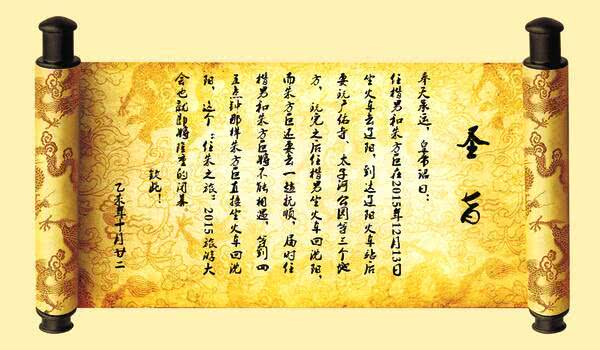 圣旨
奉天承运，皇帝诏曰：
任楷男和朱方巨在2015年12月13日
坐火车去辽阳，到达辽阳火车站后
要玩广佑寺、太子河公园等三个地
方，玩完之后任楷男坐火车回沈阳，
而朱方巨还要去一趟抚顺，届时任
楷男和朱方巨将不能相遇，等到四
五点钟那样朱方巨直接坐火车回沈
阳，这个：“任朱之旅”2015旅游大
会也就即将隆重的闭幕。
钦此！
乙未年十月廿二